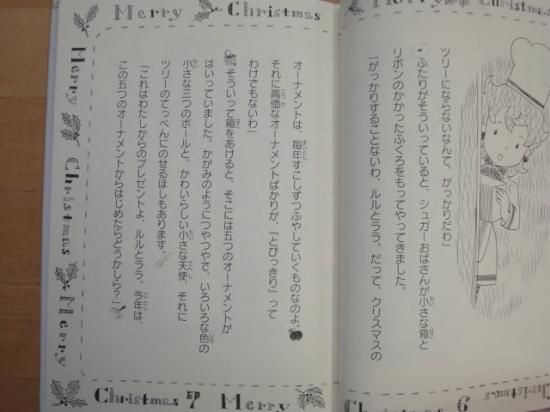 ツリーにならないなんて、がっかりだわ」
ふたりがそういっていると、シュガーおばさんが小さな箱と
リボンのかかったふくろをもってやってきました。
「がっかりすることないわ、ルルとララ。だって、クリスマスの
オーナメントは、毎年すこしずつふやしていくものなのよ。
それに高価なオーナメントばかりが、「とびっきり」って
わけでもないわ」
そういって箱をあけると、そこには五つのオーナメントが
はいっていました。かがみのようにつやつやで、いろいろな色の
小さな三つのボールと、かわいらしい小さな天使、それに
ツリーのてっぺんにのせるほしもあります。
「これはわたしからのプレゼントよ、ルルとララ。今年は、
この五つのオーナメントからはじめたらどうかしら？」
Merry Christmas
Merry Christmas
Merry Christmas Merry
Christmas 7 Merry
Christmas 6